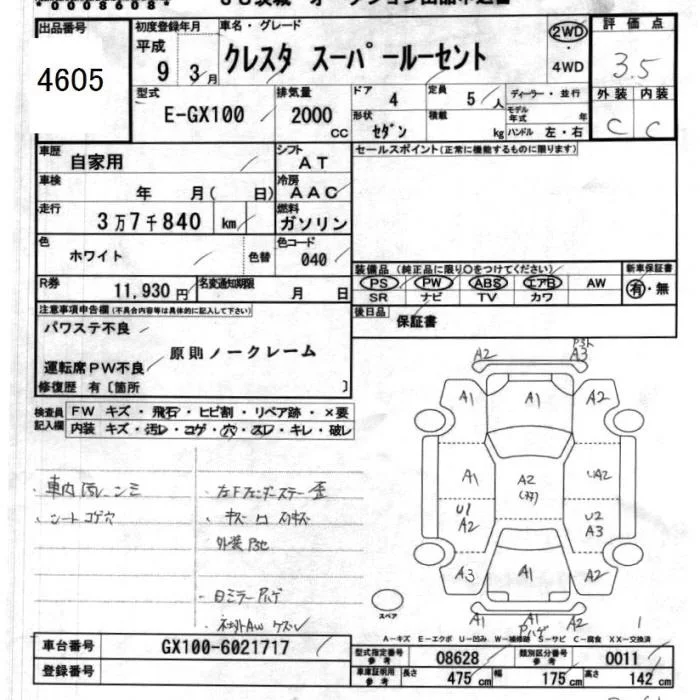 *0008608*
出品番号 初度登録年月 車名・グレード 評価点
4605
平成 9年 3月 クレスタ スーパールーセント 2WD・4WD 3.5
型式 排気量 ドア 定員 ディーラー・並行 外装 内装
E-GX100 2000 CC 4 5人 C C
形状 積載 モデル年式 年
セダン kg ハンドル 左・右
車歴 自家用 シフト AT セールスポイント(正常に機能するものに限ります)
車検 年 月( 日) 冷房 AAC
走行 3万7千840 km 燃料 ガソリン
色 ホワイト 色替 色コード 040
装備品(純正品に限り○をつけてください) 新車保証書
PS PW ABS エアB AW 有・無
SR ナビ TV カワ
R券 11,930円 名変通知期限 月 日
後日品 保証書
注意事項申告欄(不具合内容等は具体的に記入して下さい)
パワステ不良
原則ノークレーム
運転席PW不良
修復歴 有〔箇所 〕
検査員記入欄 FW キズ・飛石・ヒビ割・リペア跡・×要
内装 キズ・汚レ・コゲ・穴・スレ・キレ・破レ
A2 A3
A1 A1 A2
A1 A2 A2
U1 A2 U2 A3
A3 A1 A2
A1 A1 A2
・車内汚レ シミ
・シートコゲ穴
スペア
A-キズ E-エクボ U-凹み W-補修跡 S-サビ C-腐食 XX-交換済
車台番号 GX100-6021717
登録番号
型式指定番号 参考 08628 類別区分番号 参考 0011
車庫証明用 参考 長さ 475cm 幅 175cm 高さ 142cm